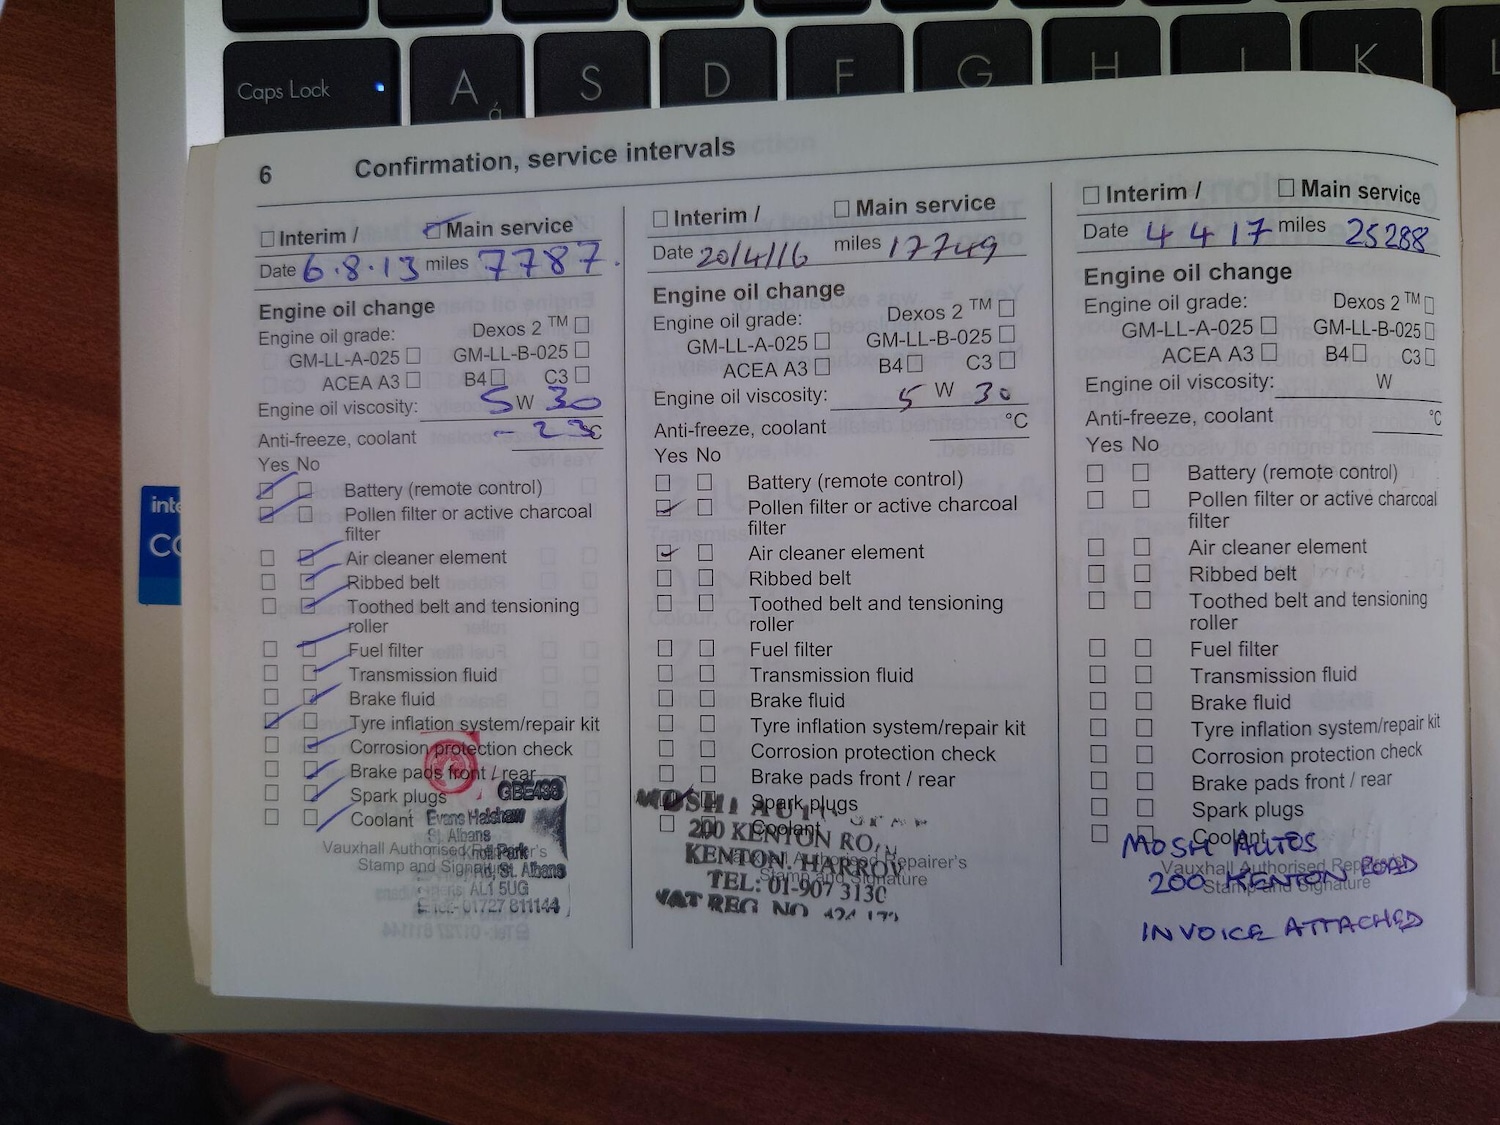 Caps Lock
A
á
S
D
F
G
H
J
K
L
inte
6 Confirmation, service intervals
Interim / Main service
Date 6.8.13 miles 7787.
Engine oil change
Engine oil grade: Dexos 2 TM
GM-LL-A-025 GM-LL-B-025
ACEA A3 B4 C3
Engine oil viscosity: 5 W 30
Anti-freeze, coolant -23 °C
Yes No
Battery (remote control)
Pollen filter or active charcoal
filter
Air cleaner element
Ribbed belt
Toothed belt and tensioning
roller
Fuel filter
Transmission fluid
Brake fluid
Tyre inflation system/repair kit
Corrosion protection check
Brake pads front / rear
Spark plugs
Coolant
Vauxhall Authorised Repairer's
Stamp and Signature
GBE433
Evans Halshaw
St. Albans
Park
St. Albans
AL1 5UG
01727 811144
Interim / Main service
Date 20/4/16 miles 17749
Engine oil change
Engine oil grade: Dexos 2 TM
GM-LL-A-025 GM-LL-B-025
ACEA A3 B4 C3
Engine oil viscosity: 5 W 30
Anti-freeze, coolant °C
Yes No
Battery (remote control)
Pollen filter or active charcoal
filter
Air cleaner element
Ribbed belt
Toothed belt and tensioning
roller
Fuel filter
Transmission fluid
Brake fluid
Tyre inflation system/repair kit
Corrosion protection check
Brake pads front / rear
Spark plugs
Coolant
Vauxhall Authorised Repairer's
Stamp and Signature
MOSHI
200 KENTON
KENTON. HARROW
TEL: 01-907 3130
VAT REG. NO.
Interim / Main service
Date 4 4 17 miles 25288
Engine oil change
Engine oil grade: Dexos 2 TM
GM-LL-A-025 GM-LL-B-025
ACEA A3 B4 C3
Engine oil viscosity: W
Anti-freeze, coolant °C
Yes No
Battery (remote control)
Pollen filter or active charcoal
filter
Air cleaner element
Ribbed belt
Toothed belt and tensioning
roller
Fuel filter
Transmission fluid
Brake fluid
Tyre inflation system/repair kit
Corrosion protection check
Brake pads front / rear
Spark plugs
Coolant
Vauxhall Authorised Repairer's
Stamp and Signature
MOSH AUTOS
200 KENTON ROAD
INVOICE ATTACHED